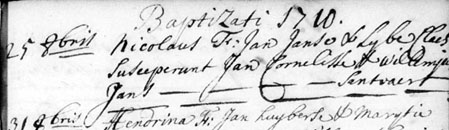 Baptizati 1710.
25 8bris Nicolaus F: Jan Janse & Lybe
Susceperunt Jan Cornelisse & Willemijn
Jans Santvaert
31 8bris Hendrina F: Jan Luyberse & Marytie